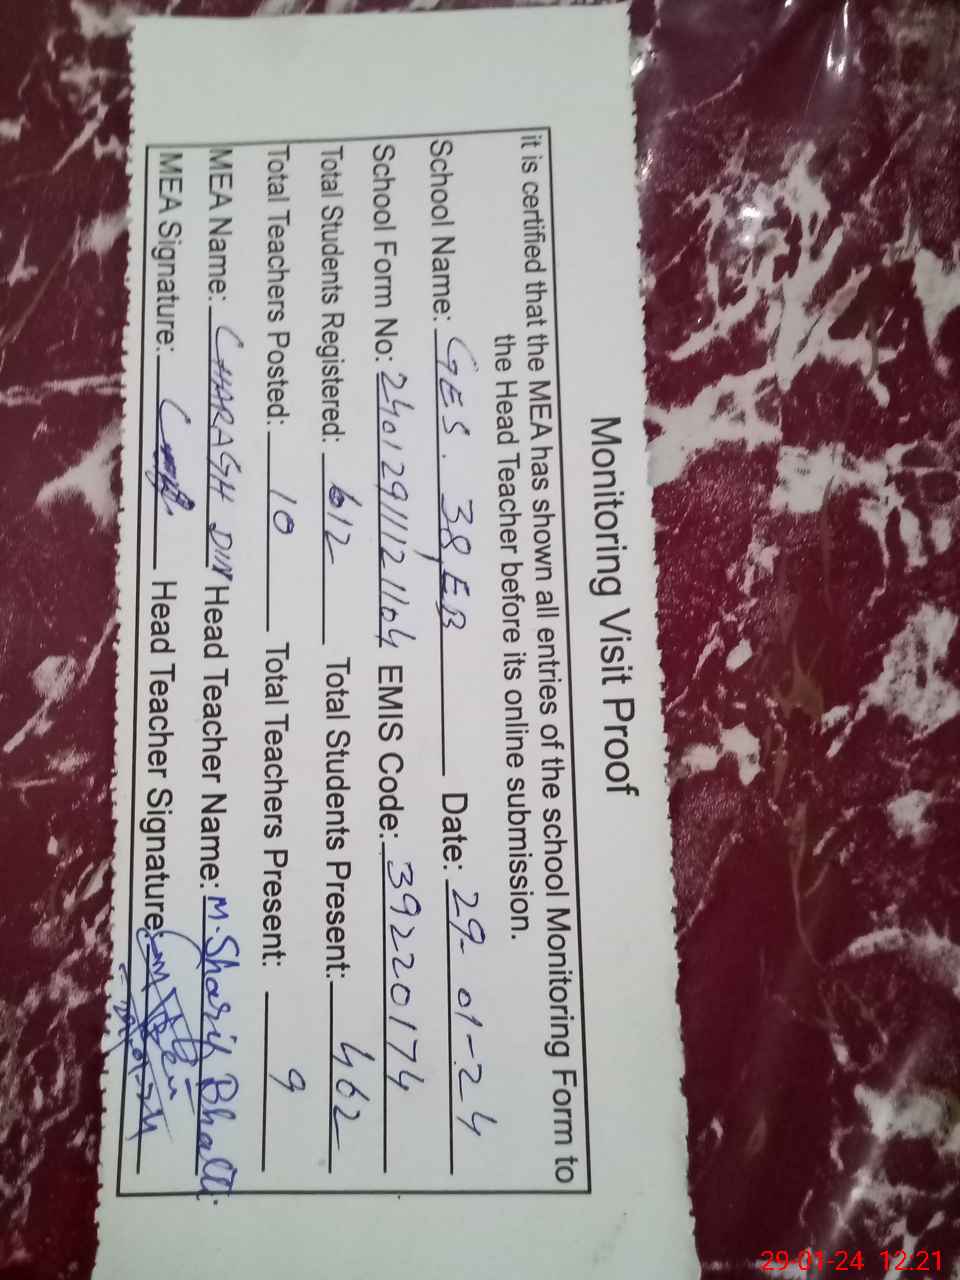 Monitoring Visit Proof
it is certified that the MEA has shown all entries of the school Monitoring Form to
the Head Teacher before its online submission.
School Name: GES. 38 EB Date: 29-01-24
School Form No: 24012911121104 EMIS Code: 39220174
Total Students Registered: 612 Total Students Present: 462
Total Teachers Posted: 10 Total Teachers Present: 9
MEA Name: CHARAGH DIN Head Teacher Name: M. Sharif Bhatti
MEA Signature: Head Teacher Signature:
29-01-24 12:21